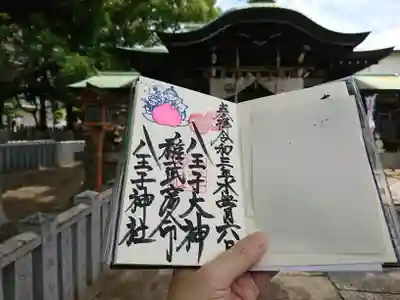 奉拝 令和三年水無月六日
八王子大神
雄武彦命
八王子神社